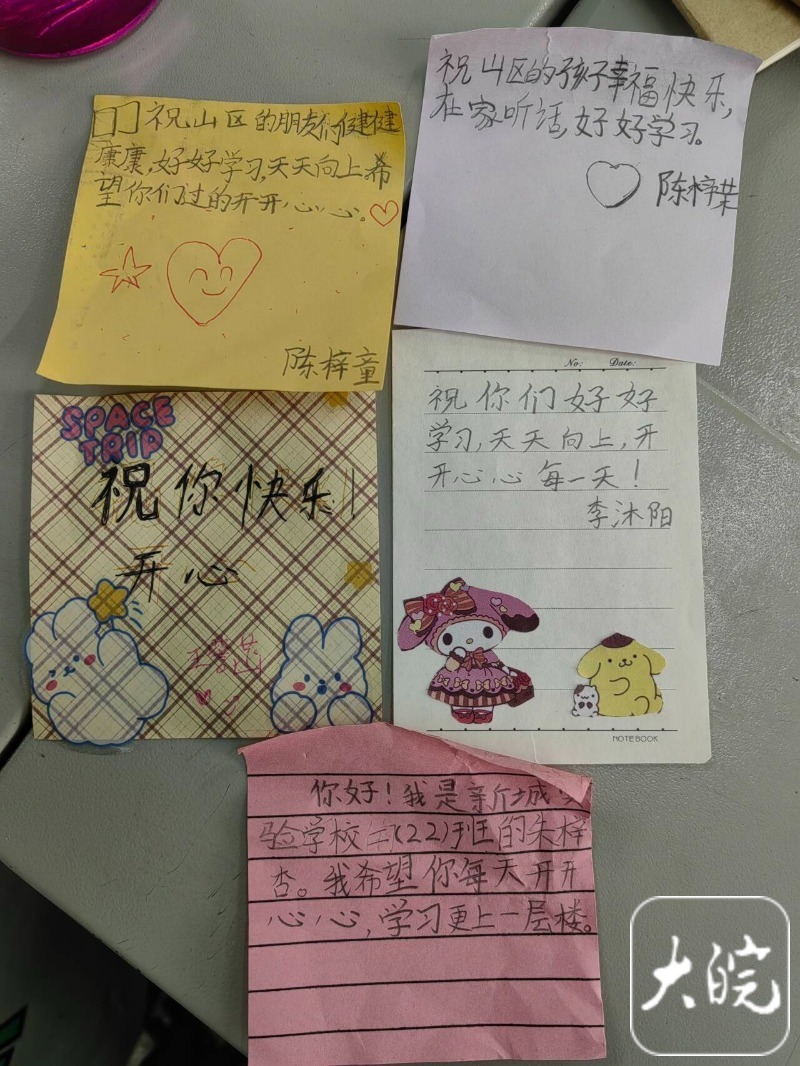 祝山区的朋友们健健
康康,好好学习,天天向上希
望你们过的开开心心。
陈梓童
祝山区的孩子幸福快乐,
在家听话,好好学习。
陈梓荣
SPACE
TRIP
祝你快乐!
开心
No: Date:
祝你们好好
学习,天天向上,开
开心心每一天!
李沐阳
NOTEBOOK
你好!我是新城实
验学校二(22)班的朱梓
杏。我希望你每天开开
心心,学习更上一层楼。
大皖